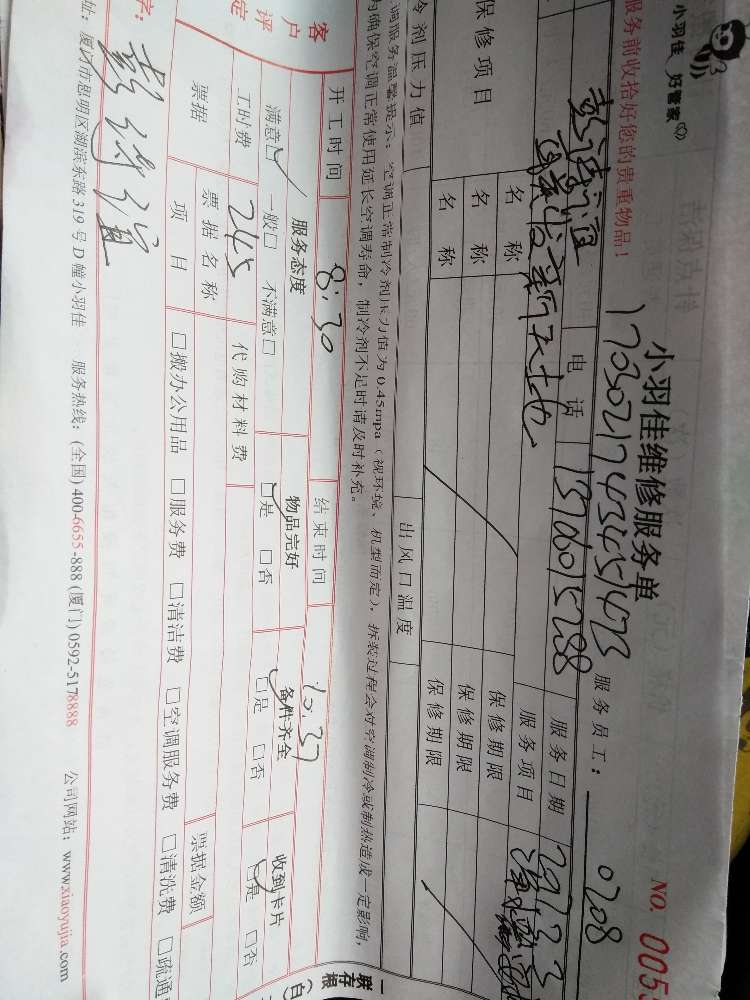 小羽佳 好管家
小羽佳维修服务单
NO. 005
服务前收拾好您的贵重物品!
服务员工: 0208
电话
服务日期
新天地
服务项目
保修项目
名称
保修期限
名称
保修期限
名称
保修期限
冷剂压力值
出风口温度
调服务温馨提示:空调正常制冷剂压力值为0.45mpa(视环境、机型而定),拆装过程会对空调制冷或制热造成一定影响,
为确保空调正常使用延长空调寿命,制冷剂不足时请及时补充。
开工时间
8:30
结束时间
10:37
客户评定
服务态度
物品完好
备件齐全
收到卡片
满意□ 一般□ 不满意□
□是 □否
□是 □否
□是 □否
工时费
245
代购材料费
票据
票据名称
票据金额
项目
□搬办公用品 □服务费 □清洁费 □空调服务费 □清洗费 □疏通
字:
址:厦门市思明区湖滨东路319号D幢小羽佳 服务热线:(全国)400-6655-888(厦门)0592-5178888 公司网站:www.xiaoyujia.com
一联存根(白